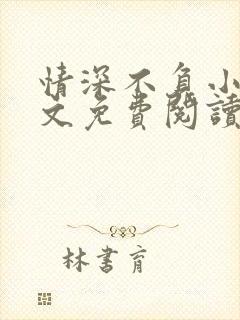 情深不負小
文免費閱讀
林書育